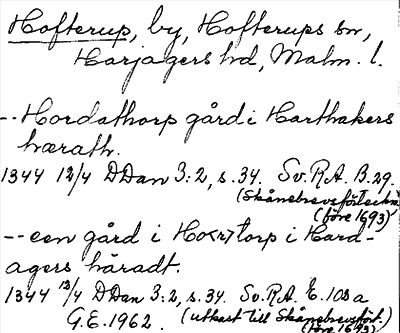 Hofterup, by, Hofterups sn,
Harjagers hd, Malm. l.
-- Hordathorp gård i Harthakers
hærath.
1344 12/4 DDan 3:2, s. 34. Sv. R.A. B. 29.
(Skånebrevsförteckn.
(före 1693)
-- een gård i Ho<r>torp i Hard-
agers häradt.
1344 12/4 DDan 3:2, s. 34. Sv. R.A. E. 108 a
(utkast till Skånebrevsfört.
G.E. 1962.
(före 1693).